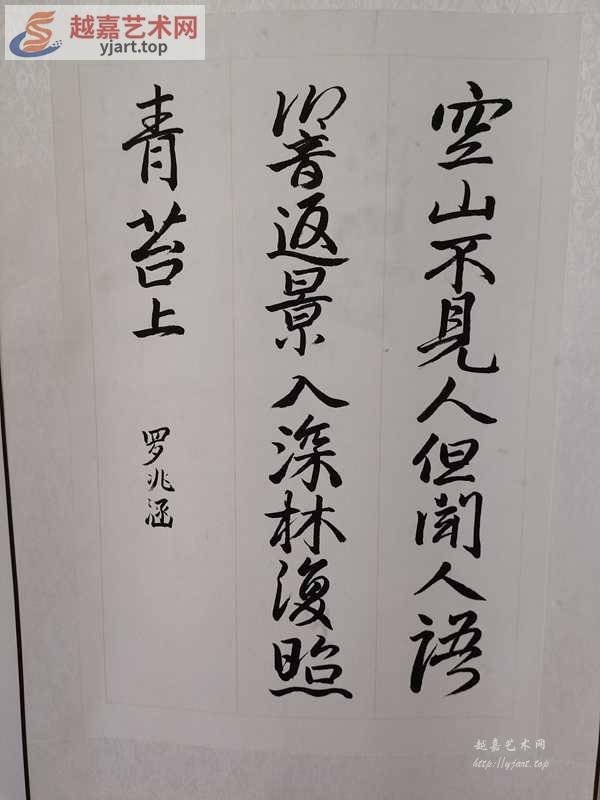 越嘉艺术网
yjart.top
空山不見人但聞人語
響返景入深林復照
青苔上
罗兆涵
越嘉艺术网
http://yjart.top